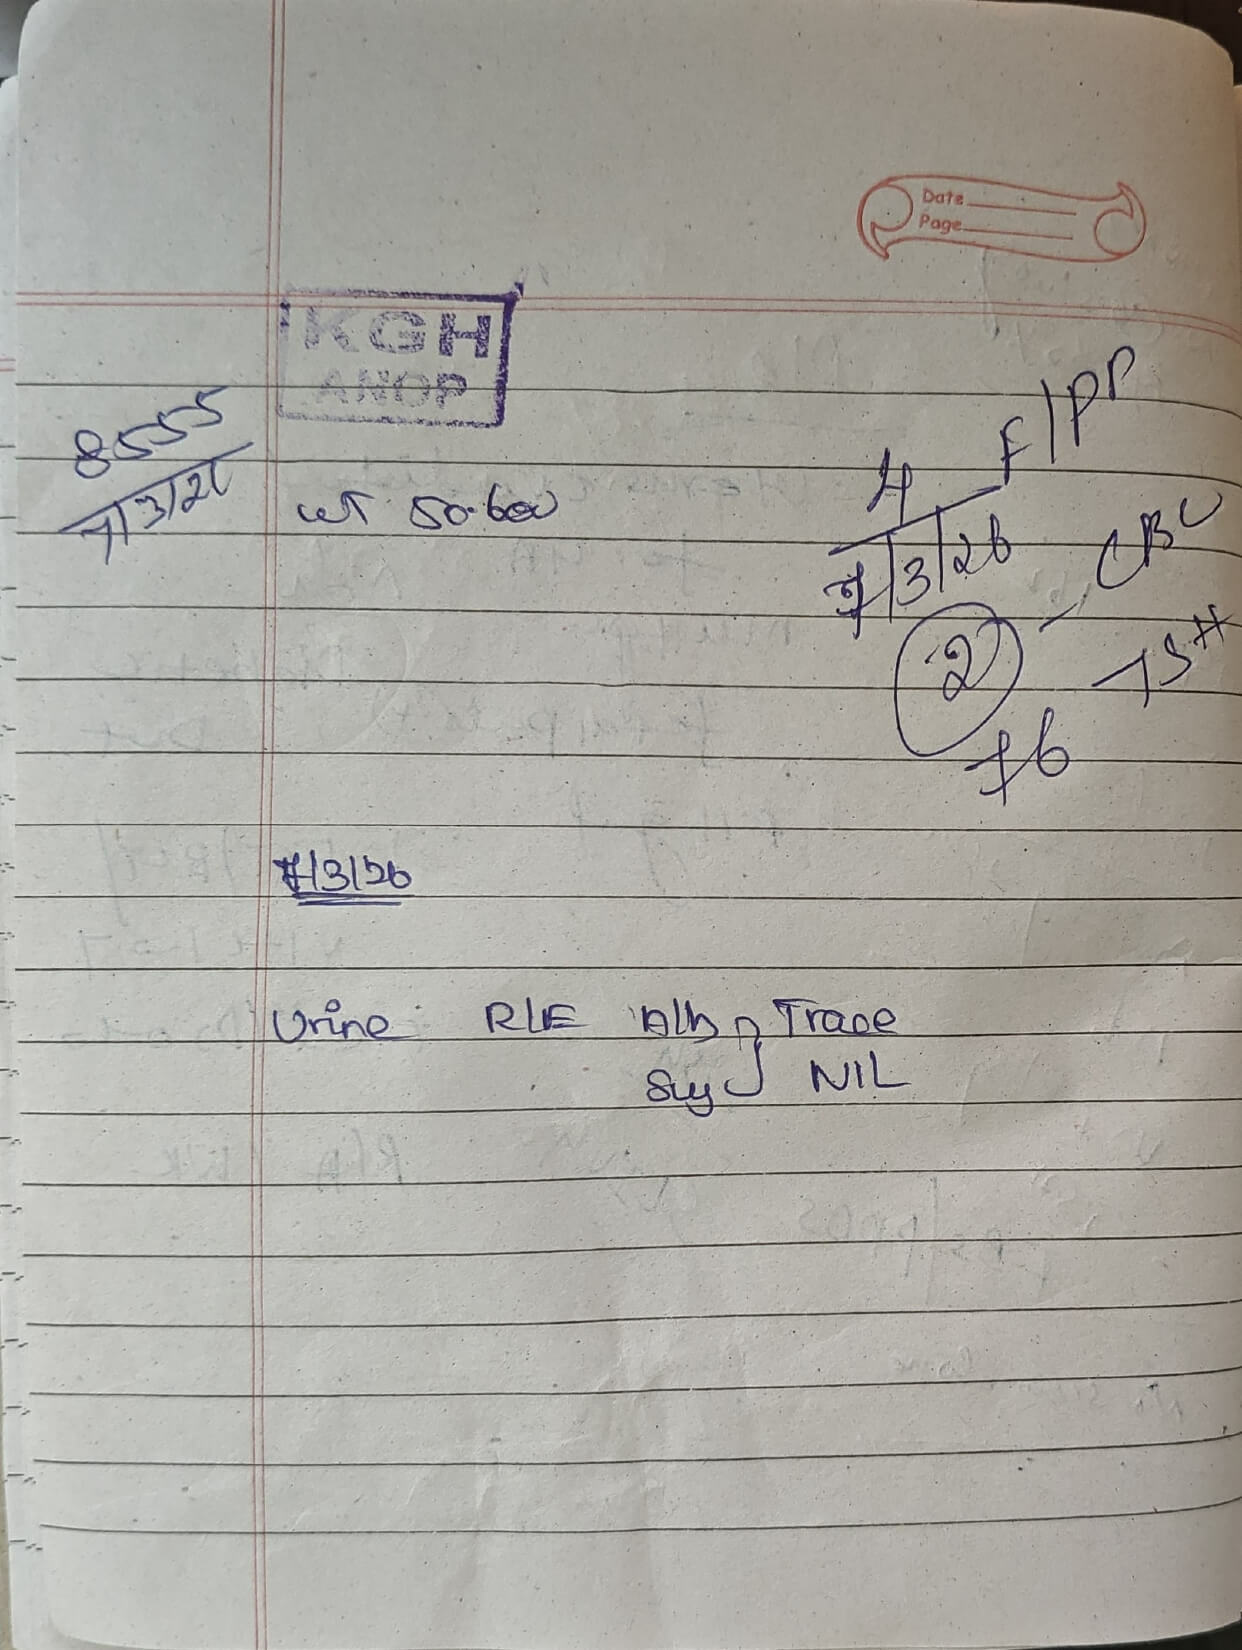 Date
Page
KGH
ANOP
8555
7/3/26
F/PP
4
7/3/26
CBC
2
TSH
76
7/3/26
Urine R/E Alb Trace
Sug NIL